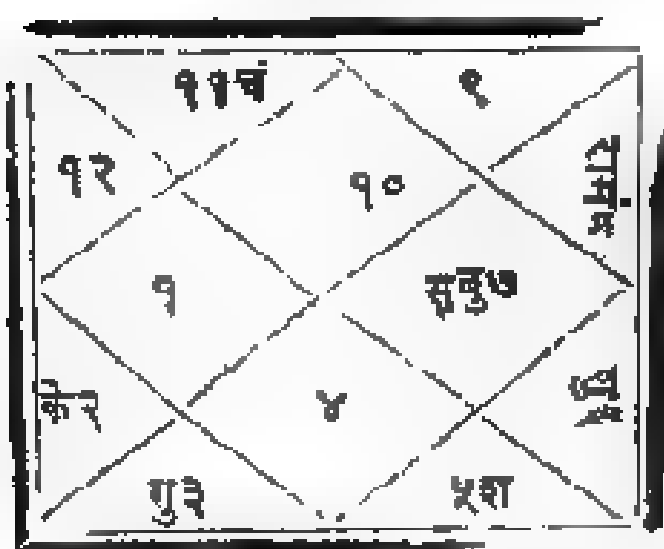 ११चं
९
१२
१०
१
सूबु७
के२
४
गु३
५श